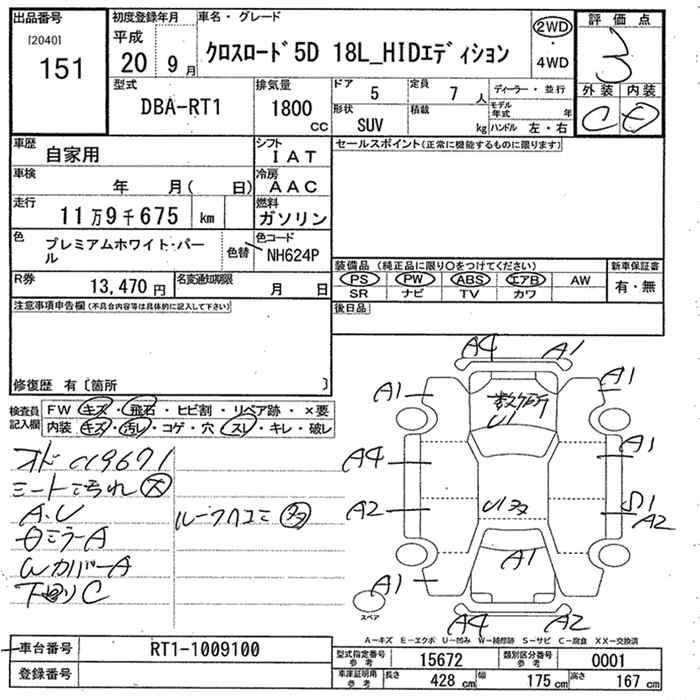 出品番号
[2040]
151
初度登録年月
平成
20 9 月
車名・グレード
クロスロード 5D 18L_HIDエディション
2WD
・
4WD
評価点
3
外装 内装
C D
型式
DBA-RT1
排気量
1800
CC
ドア 5
定員 7 人
ディーラー・並行
形状
SUV
積載
kg
モデル年式 年
ハンドル 左・右
車歴
自家用
シフト
IAT
車検
年 月( 日)
冷房
AAC
走行
11万9千675 km
燃料
ガソリン
色
プレミアムホワイト・パール
色替
色コード
NH624P
R券
13,470 円
名変通知期限
月 日
セールスポイント(正常に機能するものに限ります)
装備品 (純正品に限り○をつけてください)
新車保証書
PS PW ABS エアB AW
SR ナビ TV カワ
有・無
後日品
注意事項申告欄(不具合内容等は具体的に記入して下さい)
修復歴 有〔箇所 〕
検査員
記入欄
FW キズ・飛石・ヒビ割・リペア跡・×要
内装 キズ・汚レ・コゲ・穴・スレ・キレ・破レ
シート汚れ 大
A.U
ルーフ凹コミ 多
ミラーA
WカバーA
下回りC
A4 A1
A1 A1
数ヶ所
U1
A4 A1
A2 U1多 S1
A2
A1
A1
A4 A2
スペア
A-キズ E-エクボ U-凹み W-補修跡 S-サビ C-腐食 XX-交換済
車台番号
RT1-1009100
登録番号
型式指定番号
参考
15672
類別区分番号
参考
0001
車庫証明用
参考
長さ 428 cm 幅 175 cm 高さ 167 cm